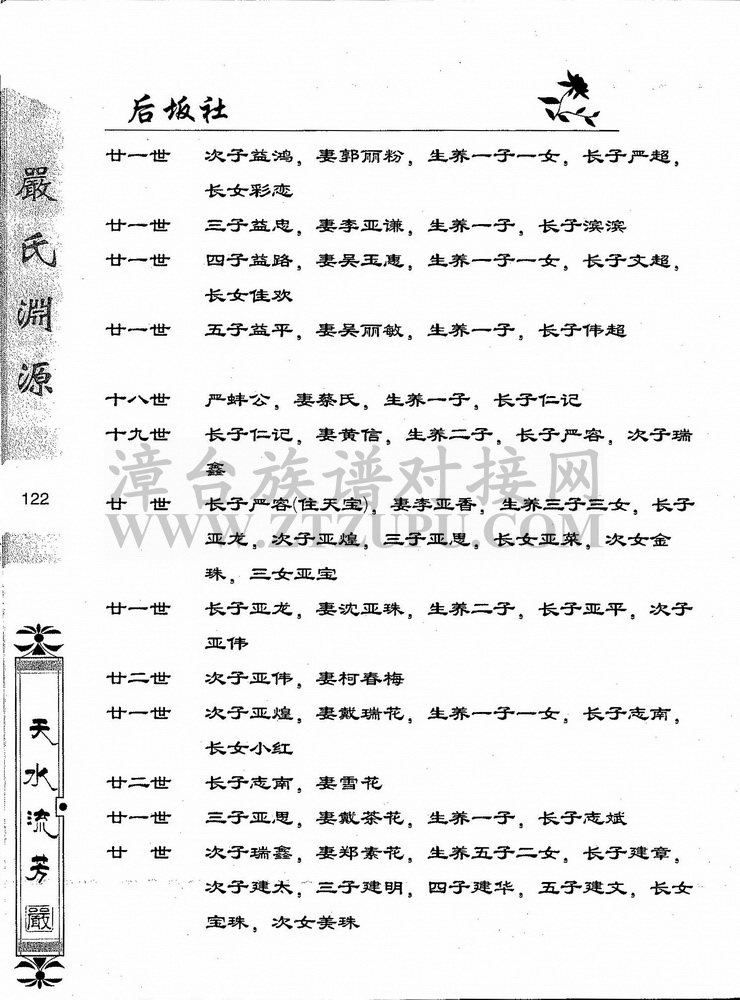 后坂社
廿一世 次子益鸿，妻郭丽粉，生养一子一女，长子严超，
长女彩恋
廿一世 三子益忠，妻李亚谦，生养一子，长子滨滨
廿一世 四子益路，妻吴玉惠，生养一子一女，长子文超，
长女佳欢
廿一世 五子益平，妻吴丽敏，生养一子，长子伟超
十八世 严蚌公，妻蔡氏，生养一子，长子仁记
十九世 长子仁记，妻黄信，生养二子，长子严容，次子瑞
鑫
廿 世 长子严容(住天宝)，妻李亚香，生养三子三女，长子
亚龙，次子亚煌，三子亚思，长女亚菜，次女金
珠，三女亚宝
廿一世 长子亚龙，妻沈亚珠，生养二子，长子亚平，次子
亚伟
廿二世 次子亚伟，妻柯春梅
廿一世 次子亚煌，妻戴瑞花，生养一子一女，长子志南，
长女小红
廿二世 长子志南，妻雪花
廿一世 三子亚思，妻戴茶花，生养一子，长子志斌
廿 世 次子瑞鑫，妻郑素花，生养五子二女，长子建章，
次子建太，三子建明，四子建华，五子建文，长女
宝珠，次女美珠
嚴氏淵源
122
天水流芳
嚴
漳台族谱对接网
WWW.ZTZUPU.COM